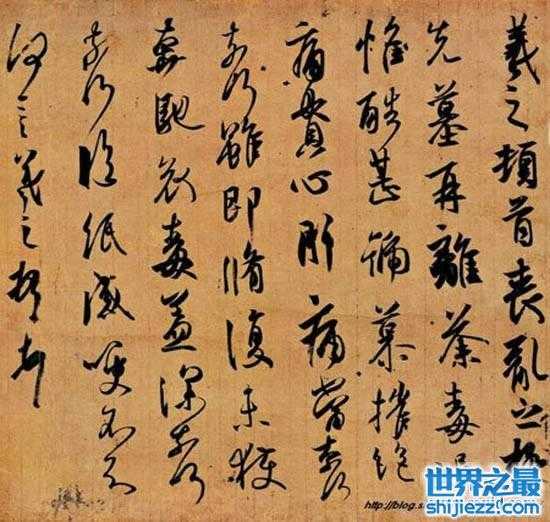 羲之頓首喪亂之極
先墓再離荼毒追
惟酷甚號慕摧絕
痛貫心肝痛當奈何
奈何雖即脩復未獲
奔馳哀毒益深奈何
奈何臨紙感哽不知
何言羲之頓首頓首
http://blog.s
世界之最
shijiezz.com